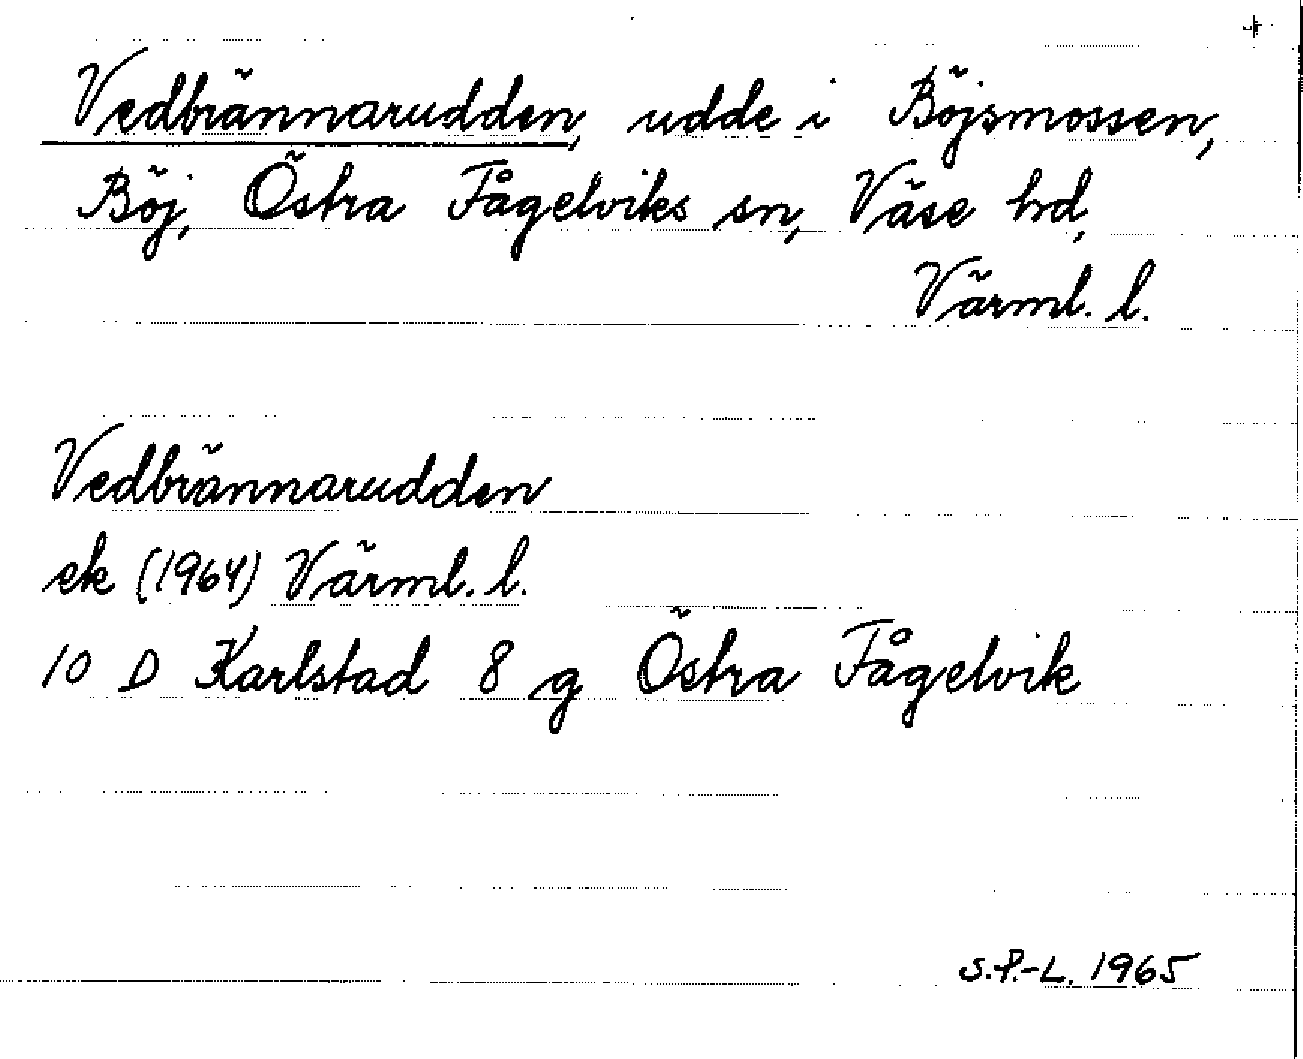 +
Vedbrännarudden, udde i Böjsmossen,
Böj, Östra Fågelviks sn, Väse hd,
Värml. l.
Vedbrännarudden
ek (1964) Värml. l.
10 D Karlstad 8 g Östra Fågelvik
S.P.-L. 1965